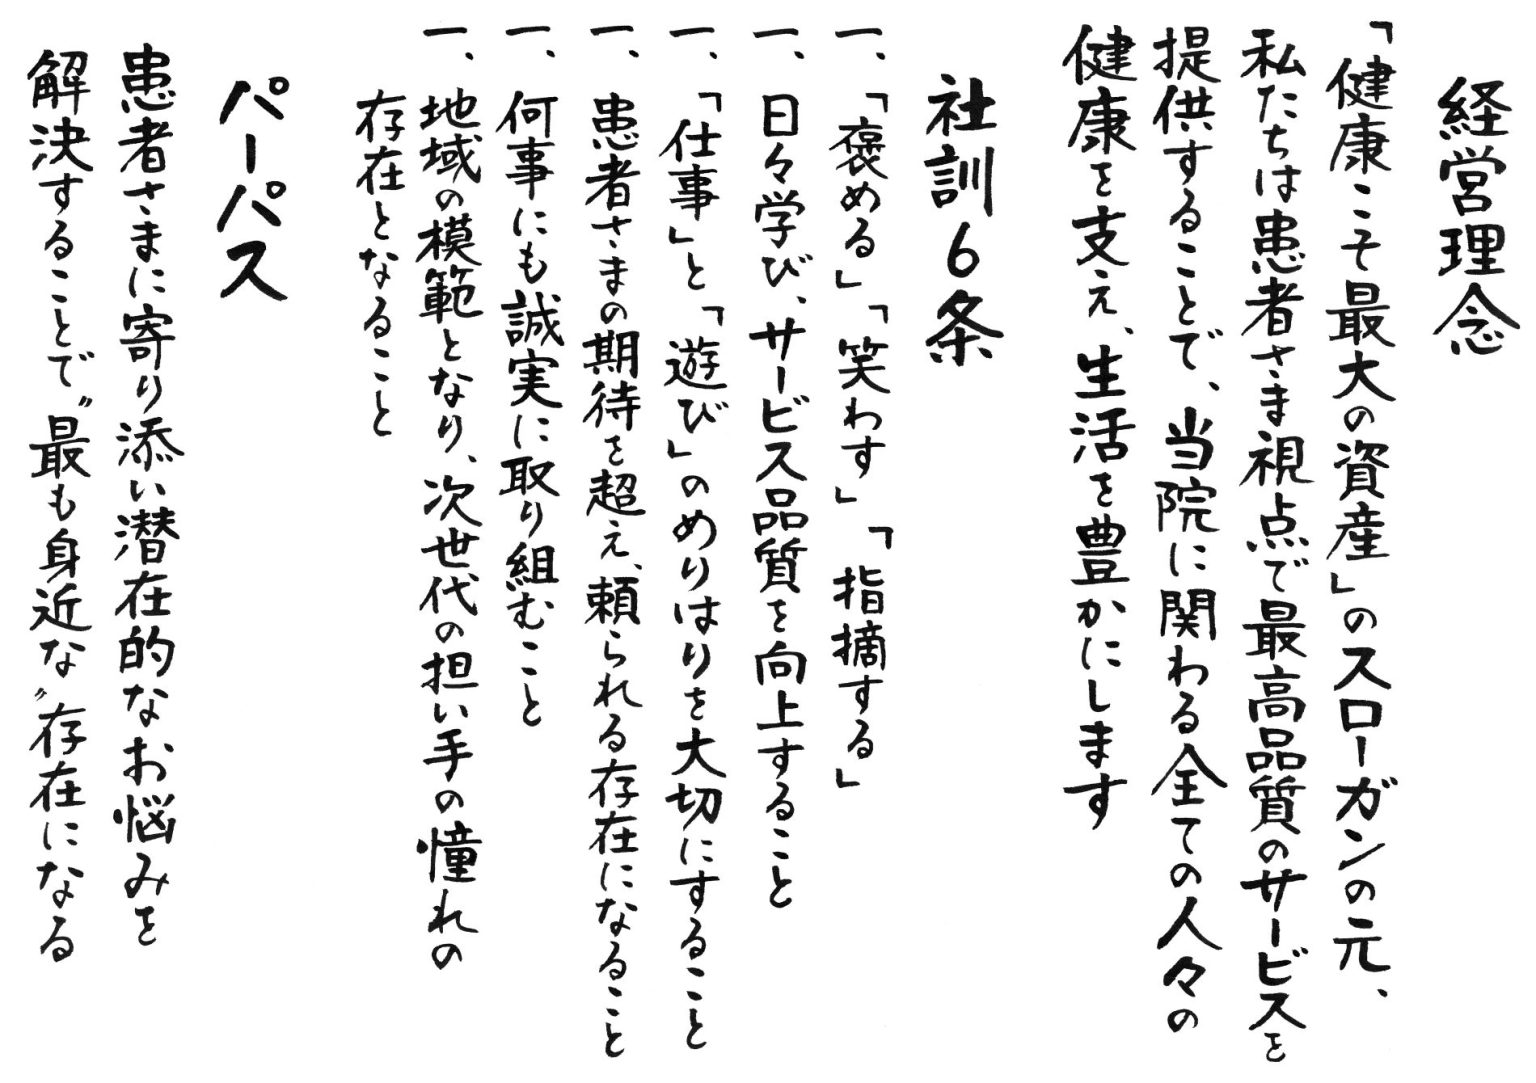 経営理念
「健康こそ最大の資産」のスローガンの元、
私たちは患者さま視点で最高品質のサービスを
提供することで、当院に関わる全ての人々の
健康を支え、生活を豊かにします
社訓6条
一、「褒める」「笑わす」「指摘する」
一、日々学び、サービス品質を向上すること
一、「仕事」と「遊び」のめりはりを大切にすること
一、患者さまの期待を超え、頼られる存在になること
一、何事にも誠実に取り組むこと
一、地域の模範となり、次世代の担い手の憧れの
存在となること
パーパス
患者さまに寄り添い潜在的なお悩みを
解決することで〝最も身近な〟存在になる